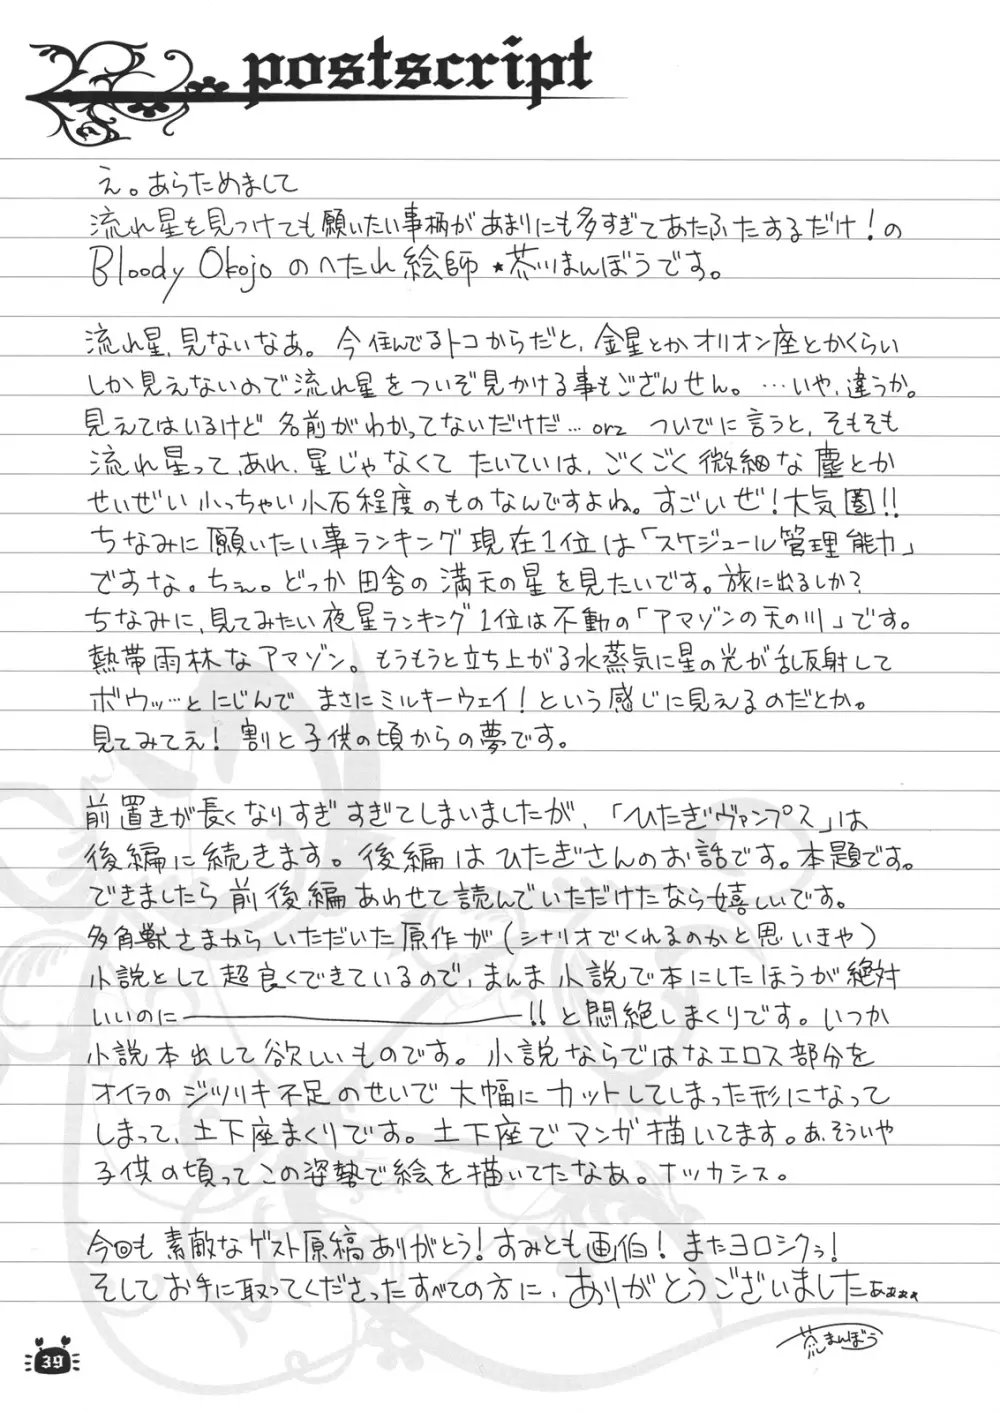 postscript
え。あらためまして
流れ星を見つけても願いたい事柄があまりにも多すぎてあたふたするだけ！の
Bloody Okojoのへたれ絵師★茶川まんぼうです。
流れ星、見ないなあ。今住んでるトコからだと、金星とかオリオン座とかくらい
しか見えないので流れ星をついぞ見かける事もござんせん。…いや、違うか。
見えてはいるけど名前がわかってないだけだ…orz ついでに言うと、そもそも
流れ星って、あれ、星じゃなくてたいていは、ごくごく微細な塵とか
せいぜい小っちゃい小石程度のものなんですよね。すごいぜ！大気圏！！
ちなみに願いたい事ランキング現在1位は「スケジュール管理能力」
ですな。ちぇ。どっか田舎の満天の星を見たいです。旅に出るしか？
ちなみに、見てみたい夜星ランキング1位は不動の「アマゾンの天の川」です。
熱帯雨林なアマゾン。もうもうと立ち上がる水蒸気に星の光が乱反射して
ボウッ…とにじんでまさにミルキーウェイ！という感じに見えるのだとか。
見てみてえ！割と子供の頃からの夢です。
前置きが長くなりすぎすぎてしまいましたが、「ひたぎヴァンプス」は
後編に続きます。後編はひたぎさんのお話です。本題です。
できましたら前後編あわせて読んでいただけたなら嬉しいです。
多角獣さまからいただいた原作が(シナリオでくれるのかと思いきや)
小説として超良くできているので、まんま小説で本にしたほうが絶対
いいのに――――――!!と悶絶しまくりです。いつか
小説本出して欲しいものです。小説ならではなエロス部分を
オイラのジツリキ不足のせいで大幅にカットしてしまった形になって
しまって、土下座まくりです。土下座でマンガ描いてます。あ、そういや
子供の頃ってこの姿勢で絵を描いてたなあ。ナツカシス。
今回も素敵なゲスト原稿ありがとう！すみとも画伯！またヨロシクぅ！
そしてお手に取ってくださったすべての方に、ありがとうございましたぁぁぁぁ
まんぼう
39